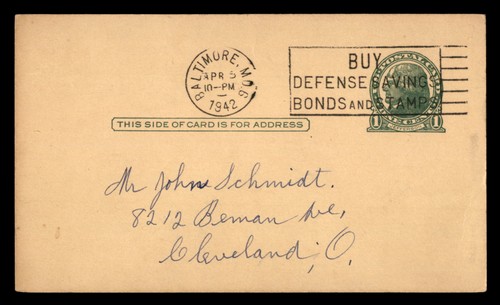 BALTIMORE, MD. 6
APR 5
10-PM
1942
BUY
DEFENSE SAVINGS
BONDS AND STAMPS
THIS SIDE OF CARD IS FOR ADDRESS
Mr John Schmidt.
8212 Beman Ave,
Cleveland, O.